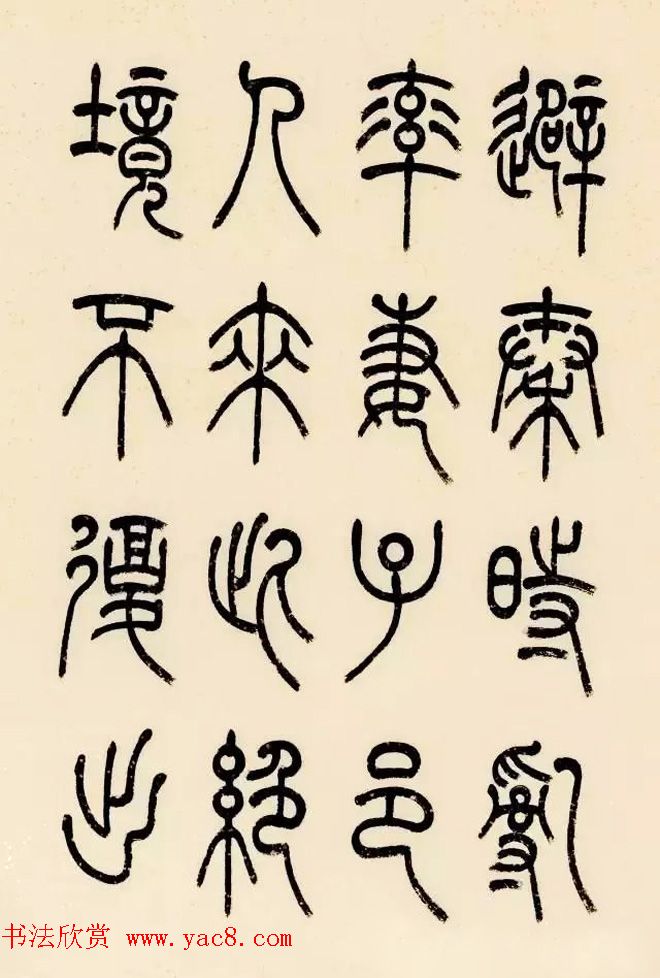 避秦時亂
率妻子邑
人来此絕
境不復出
书法欣赏 www.yac8.com